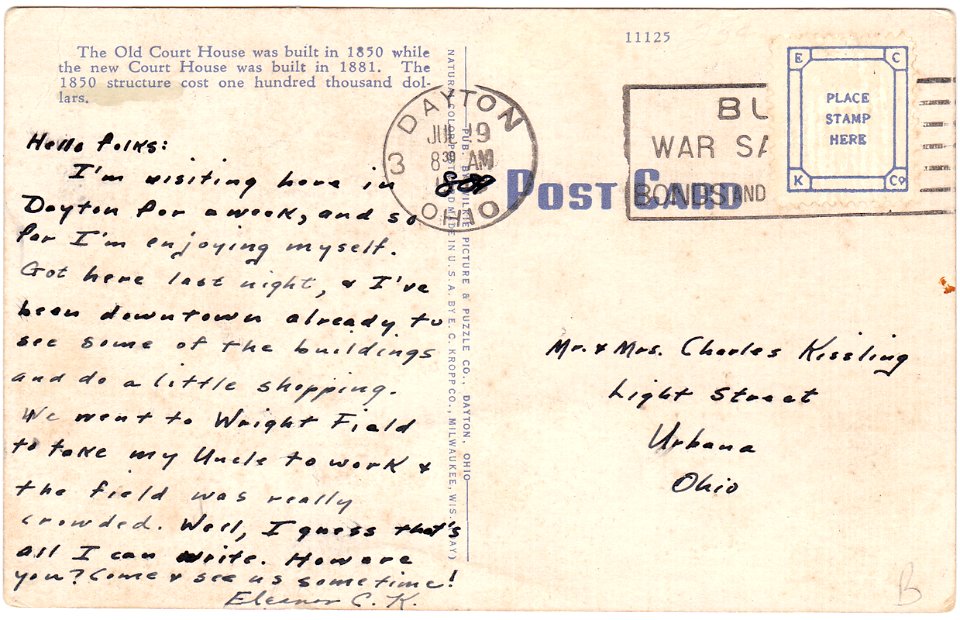 The Old Court House was built in 1850 while
the new Court House was built in 1881. The
1850 structure cost one hundred thousand dol-
lars.
Hello folks:
I'm visiting here in
Dayton for a week, and so
far I'm enjoying myself.
Got here last night, & I've
been downtown already to
see some of the buildings
and do a little shopping.
We went to Wright Field
to take my Uncle to work &
the field was really
crowded. Well, I guess that's
all I can write. How are
you? Come & see us sometime!
Eleanor C. K.
NATURAL COLOR MADE IN U. S. A. BY E. C. KROPP CO., MILWAUKEE, WIS.
PUB. PICTURE & PUZZLE CO., DAYTON, OHIO
DAYTON
JUL 9
3 8 30 AM
OHIO
11125
BU
WAR SA
BONDS AND
E C
PLACE
STAMP
HERE
K Co
POST CARD
Mr. & Mrs. Charles Kissling
Light Street
Urbana
Ohio
B